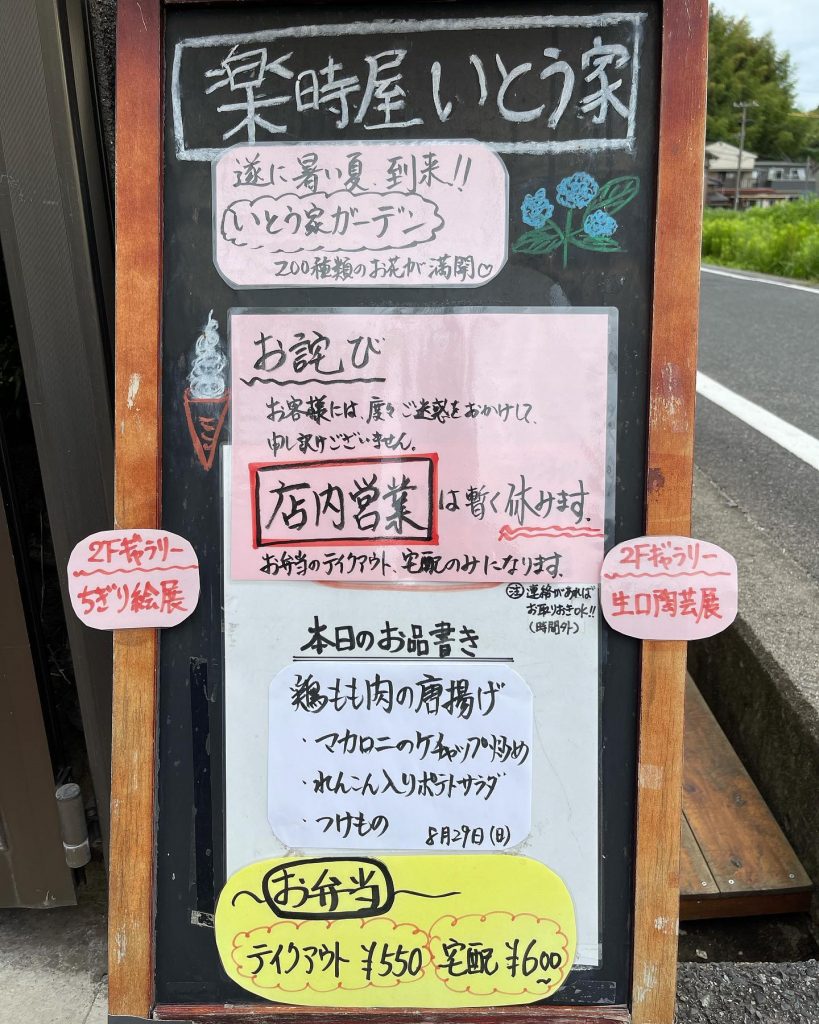 楽時屋 いとう家
遂に暑い夏、到来!!
いとう家ガーデン
200種類のお花が満開♡
お詫び
お客様には、度々ご迷惑をおかけして、
申し訳ございません。
店内営業は暫く休みます。
お弁当のテイクアウト、宅配のみになります。
注 連絡があれば
お取りおきOK!!
(時間外)
2Fギャラリー
ちぎり絵展
2Fギャラリー
生口陶芸展
本日のお品書き
鶏もも肉の唐揚げ
・マカロニのケチャップ炒め
・れんこん入りポテトサラダ
・つけもの
8月29日(日)
お弁当
テイクアウト ¥550 宅配 ¥600